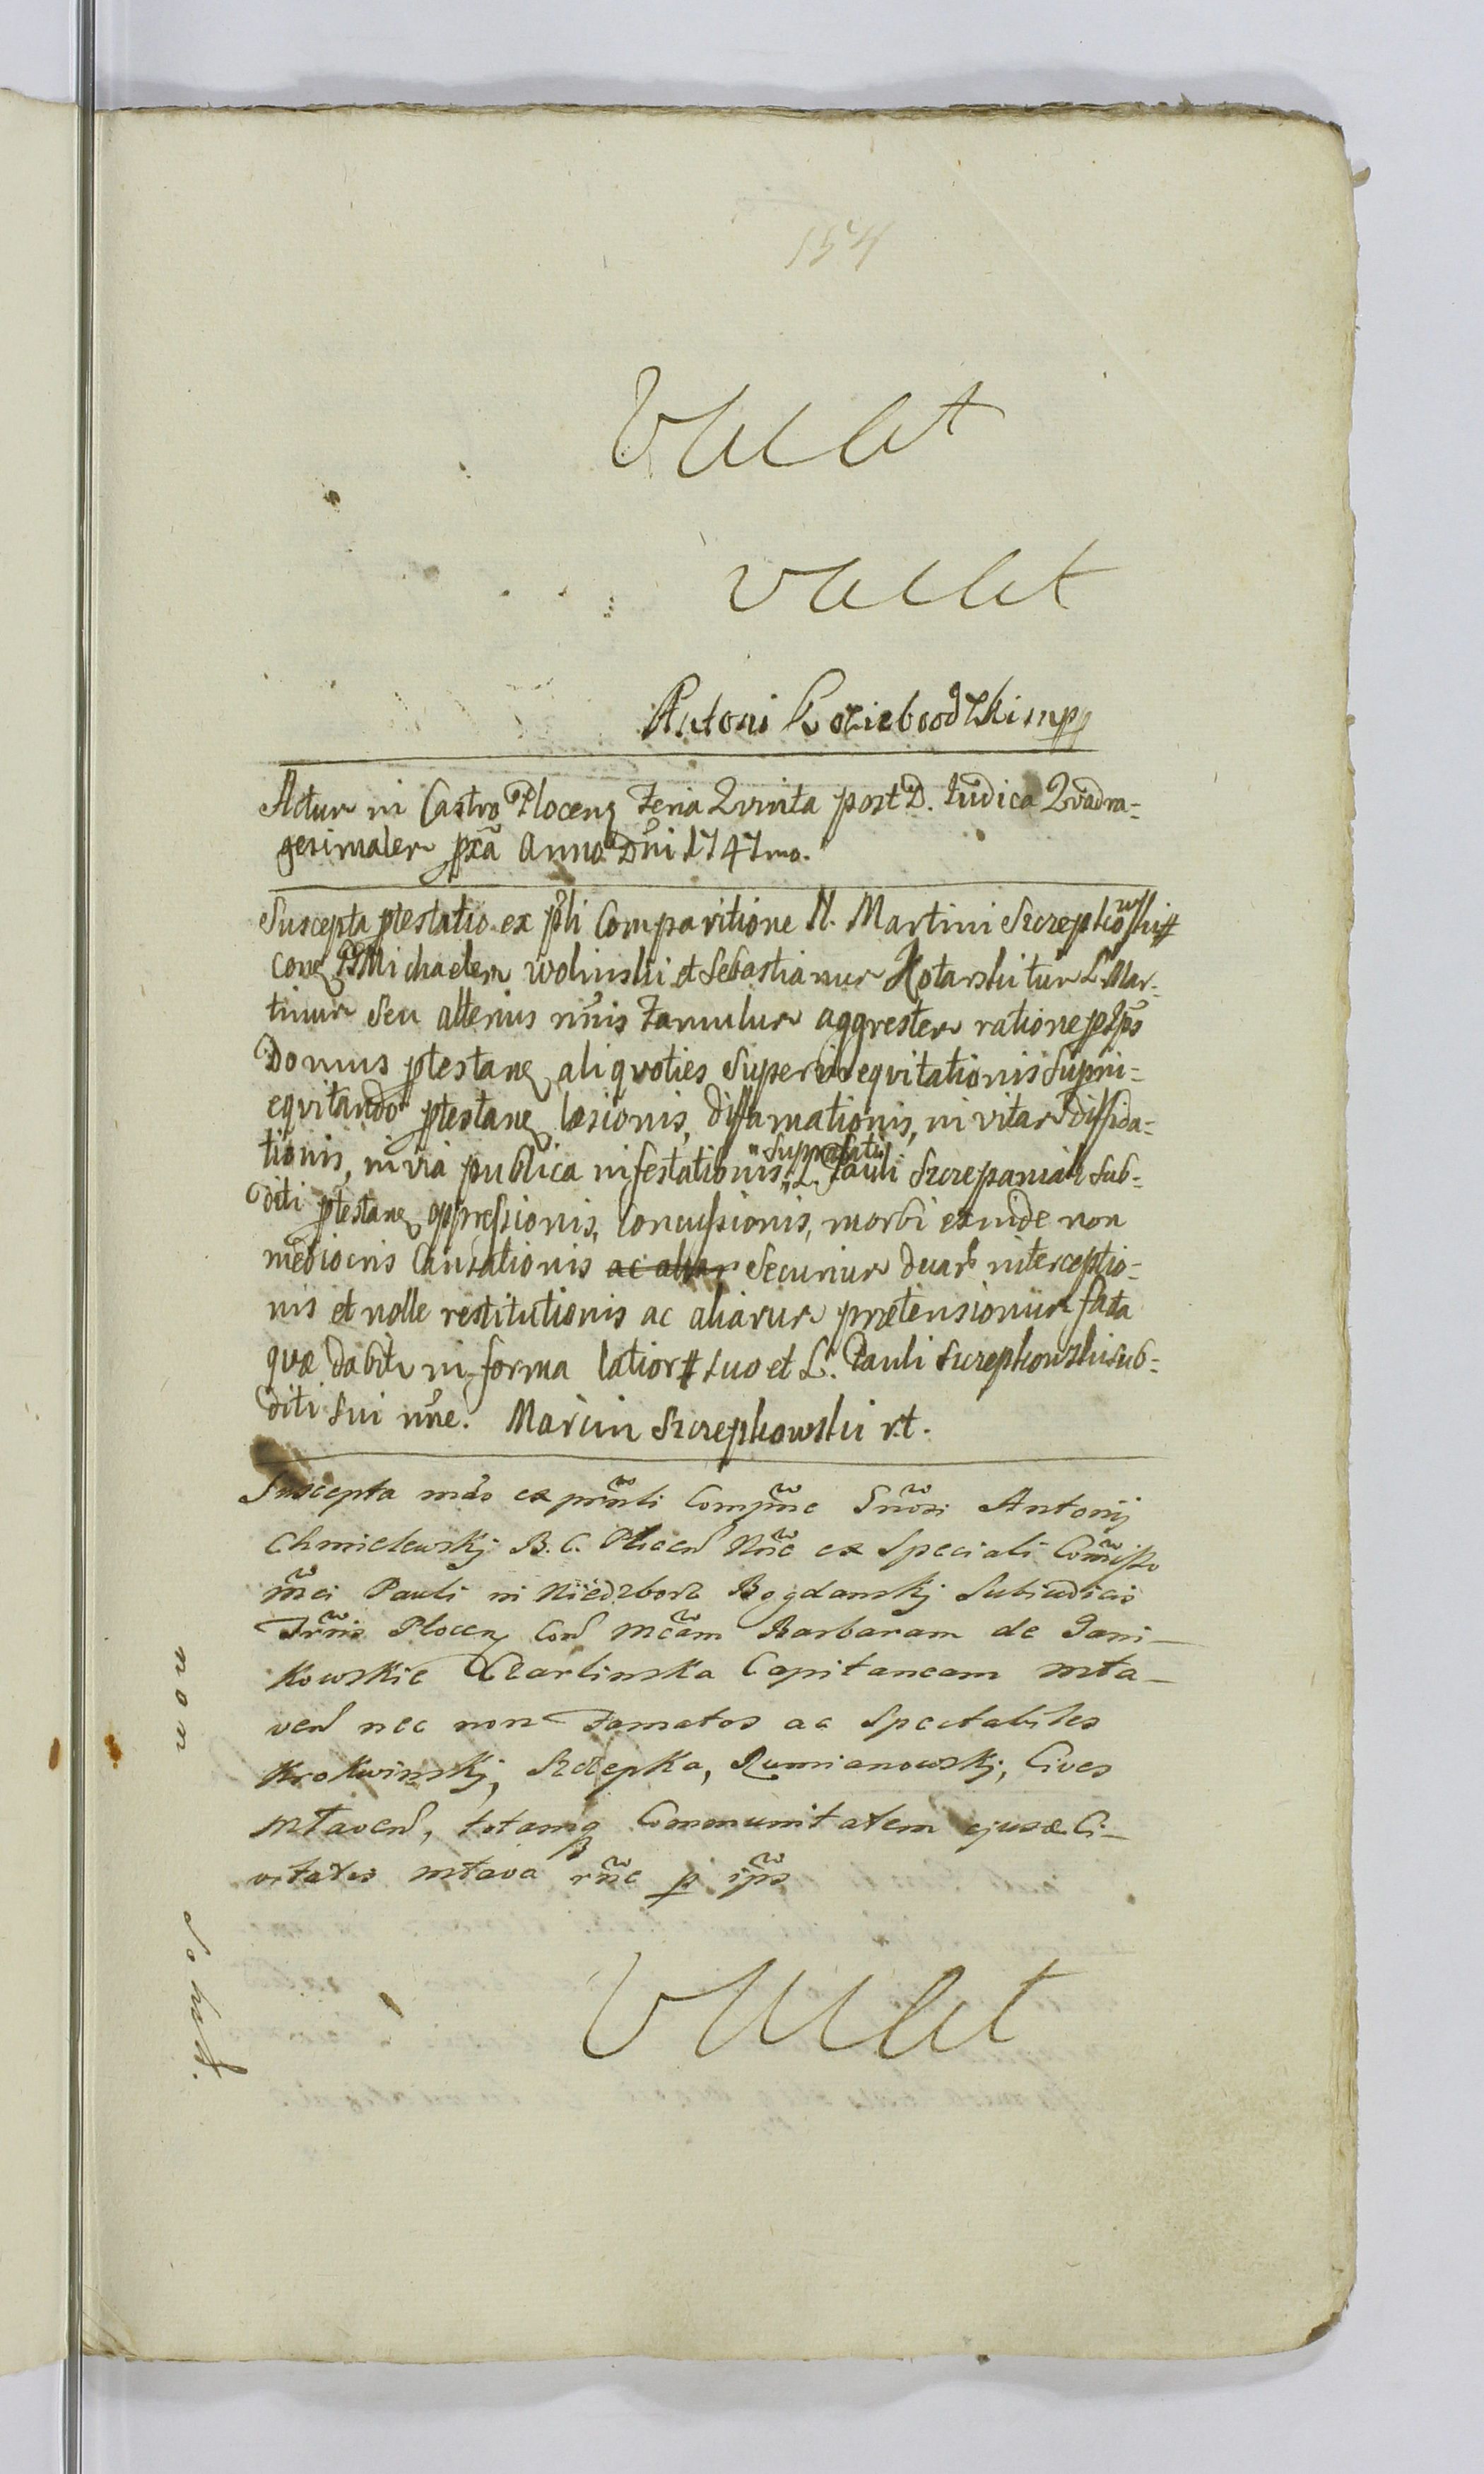 154
Vacat
vacat
Antoni Koziebrodzki mpp
Actum in Castro Plocens Feria Qvinta post D. Judica Qvadra-
gesimalem pxã Anno Dni 1747mo.
Suscepta ptestatio ex pli Comparitione N. Martini Szczepkowski
con GG Michaelem Wolinski et Sebastianum Kotarski tum L. Mar-
tinum seu alterius nnis Famulum aggrestem ratione p ips
Domus ptestan aliqvoties Superinequitationis Supini-
equitando ptestan læsionis, diffamationis, in vitam diffida-
tionis, in via publica infestationis, "suprafati" L. Pauli Szczepaniak sub-
diti ptestan oppressionis, Concussionis, morbi exinde non
mediocris Causationis ac aliar Securium duar interceptio-
nis et nolle restitutionis ac aliarum prætensionum fata
qvæ dabit in forma latiori suo et L. Pauli Szczepkowski sub-
diti sui nne. Marcin Szczepkowski r.t.
Suscepta mão ex prnli Compne Gnosi Antonij
Chmielewskj B. C. Plocens Nne ex Speciali Commisso
Mci Pauli in Niedzborz Bogdanskj Subiudicis
Trnis Plocen Con Mcam Barbaram de Jani-
kowskie Czarlinska Capitaneam Mła-
ven nec non Famatos ac Spectabiles
Krokwinskj, Szczepka, Rumianowskj, Cives
Mławen, totamq Communitatem ejusd Ci-
vitatis Mława rne p ips
non
solvit.
Vacat